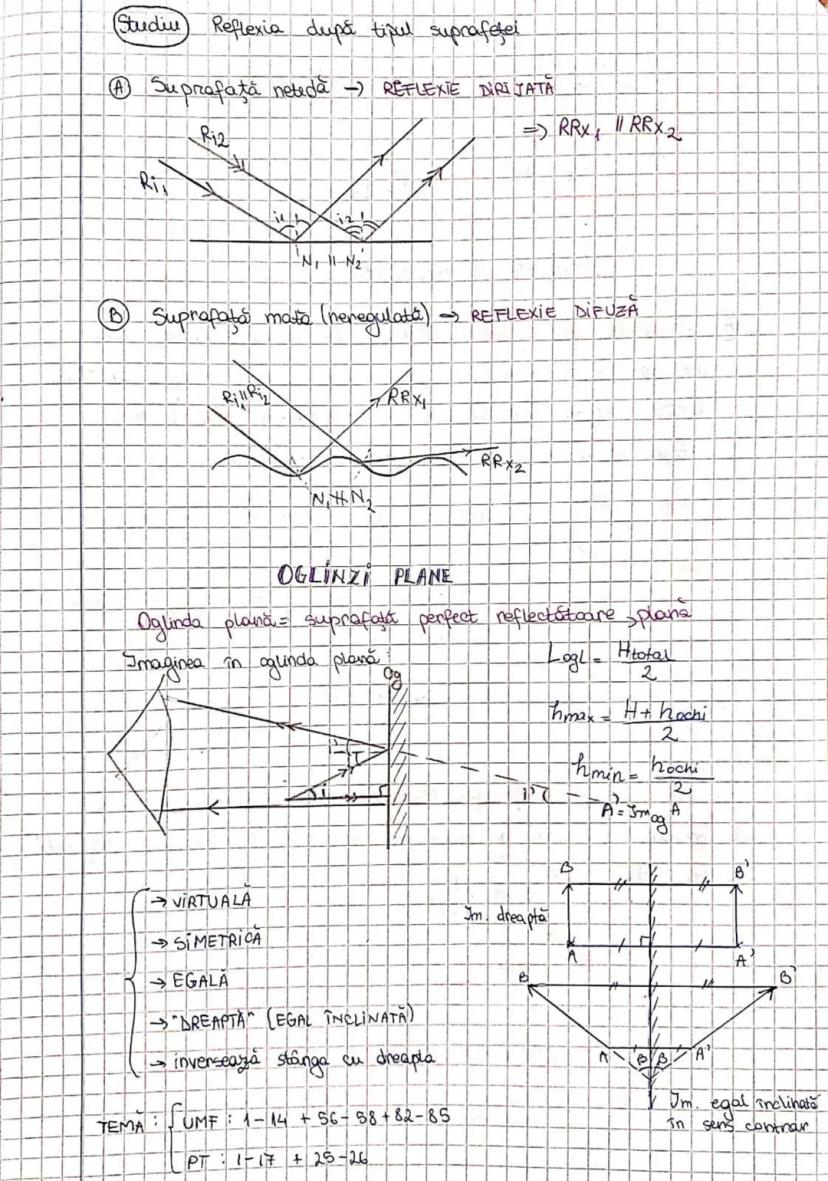 Studiu Reflexia după tipul suprafeței
A Suprafață netedă → REFLEXIE DIRIJATĂ
=> RRx1 || RRx2
Ri2
Ri1
i1 i2
N1 || N2
B Suprafață mată (neregulată) → REFLEXIE DIFUZĂ
Ri1 || Ri2
RRx1
RRx2
N1 ∦ N2
OGLINZI PLANE
Oglinda plană = suprafață perfect reflectătoare, plană
Imaginea în oglinda plană:
Og
Logl = Htotal/2
hmax = H + hochi/2
hmin = hochi/2
i
A' = Imog A
→ VIRTUALĂ
→ SIMETRICĂ
→ EGALĂ
→ "DREAPTĂ" (EGAL ÎNCLINATĂ)
→ inversează stânga cu dreapta
B B'
Im. dreaptă
A A'
B B'
A β β A'
Im. egal înclinată
în sens contrar
TEMĂ : UMF : 1-14 + 56-58 + 82-85
PT : 1-17 + 25-26